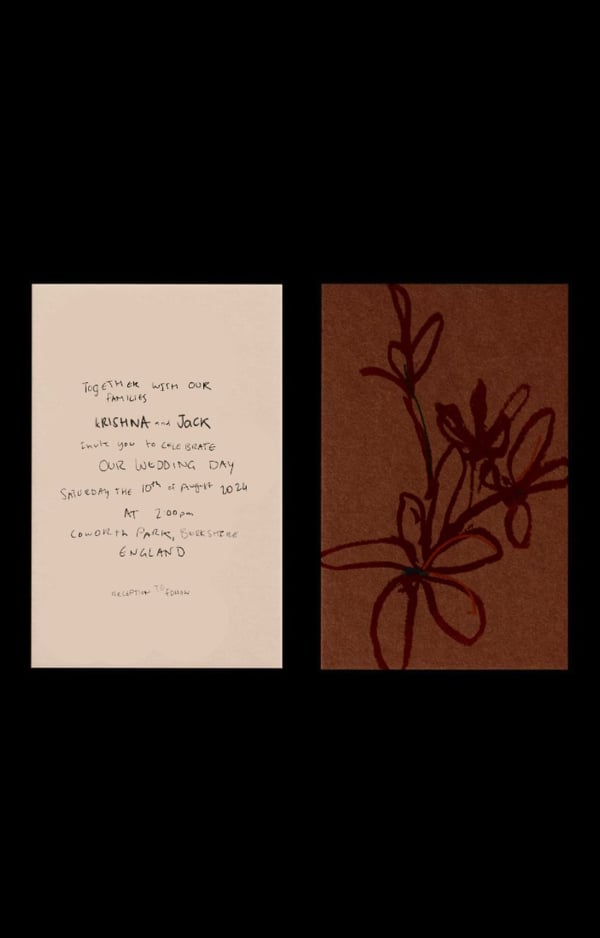 TOGETHER WITH OUR
FAMILIES
KRISHNA and JACK
Invite you to CELEBRATE
OUR WEDDING DAY
SATURDAY THE 10th of August 2024
AT 2:00pm
COWORTH PARK, BERKSHIRE
ENGLAND
RECEPTION TO FOLLOW